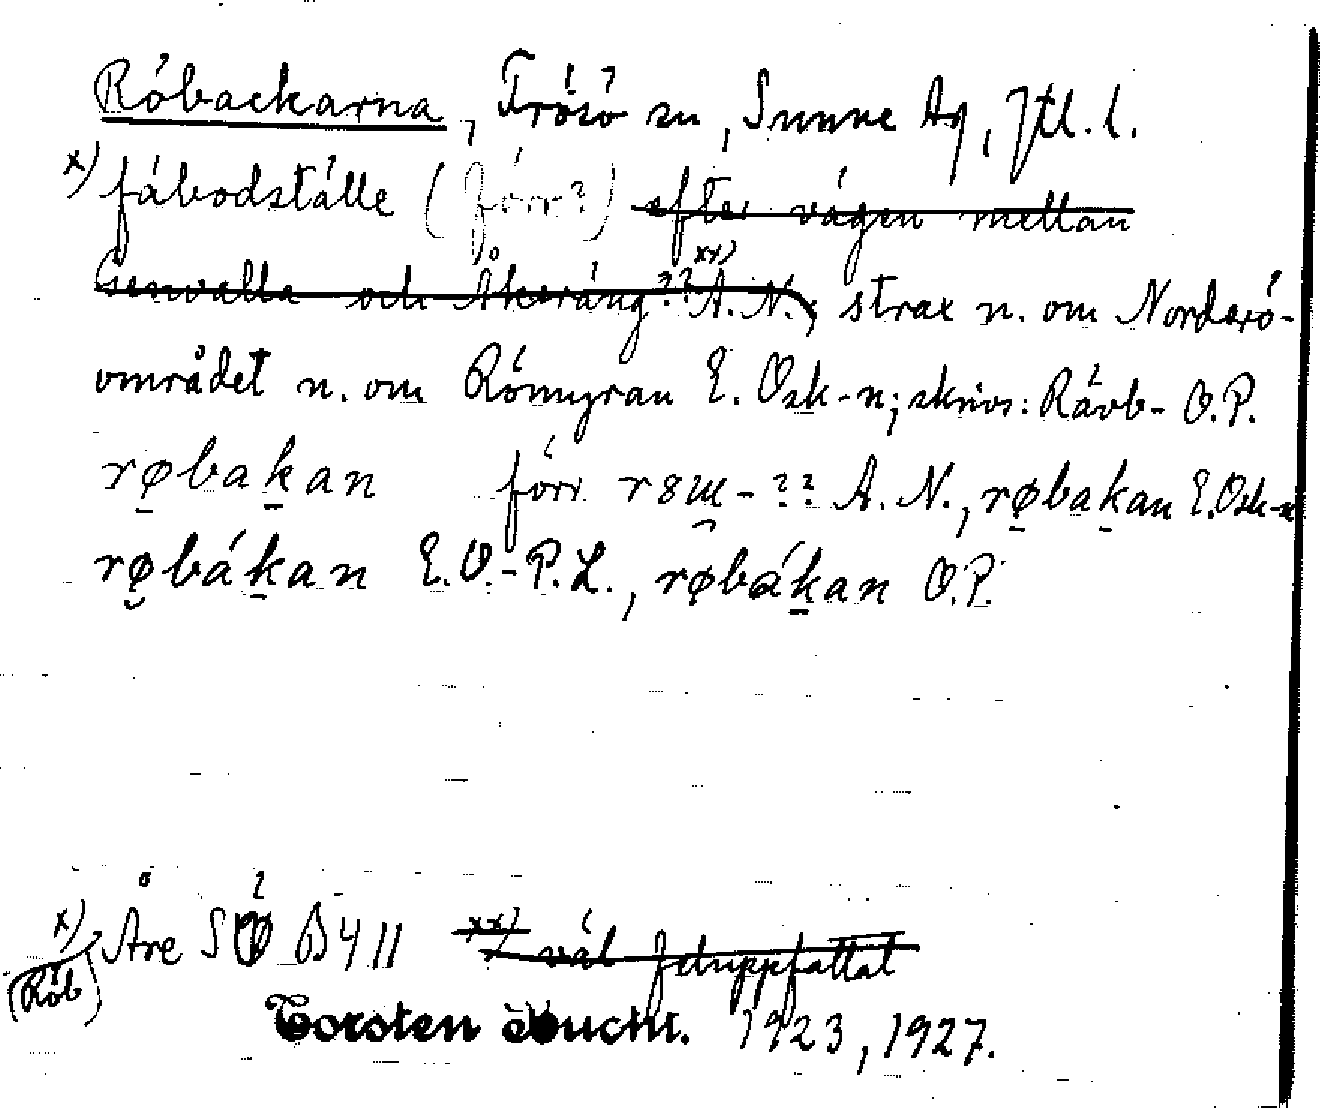 Röbackarna, Frösö sn, Sunne tg, Jtl. l.
x) fäbodställe (förr?) efter vägen mellan
Genvalla och Åkeräng?? xx) A. N., strax n. om Norderö-
området n. om Römyran E. Osk-n; skrivs: Rävb- O.P.
røbakan förr A. N., røbakan E. Osk-n
røbákan E. O.-P. L., røbákan O.P.
x) Åre SO Ö 411 xx) väl feluppfattat
(Röb)
Torsten Bucht. 1923, 1927.